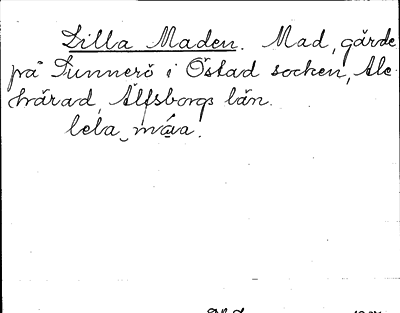 Lilla Maden. Mad, gärde
på Tunnerö i Östad socken, Ale
härad, Älfsborgs län.
lela máa.